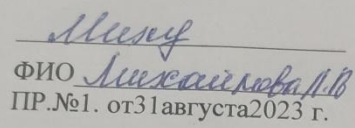 ФИО Михайлова Л.В
ПР.№1. от31августа2023 г.